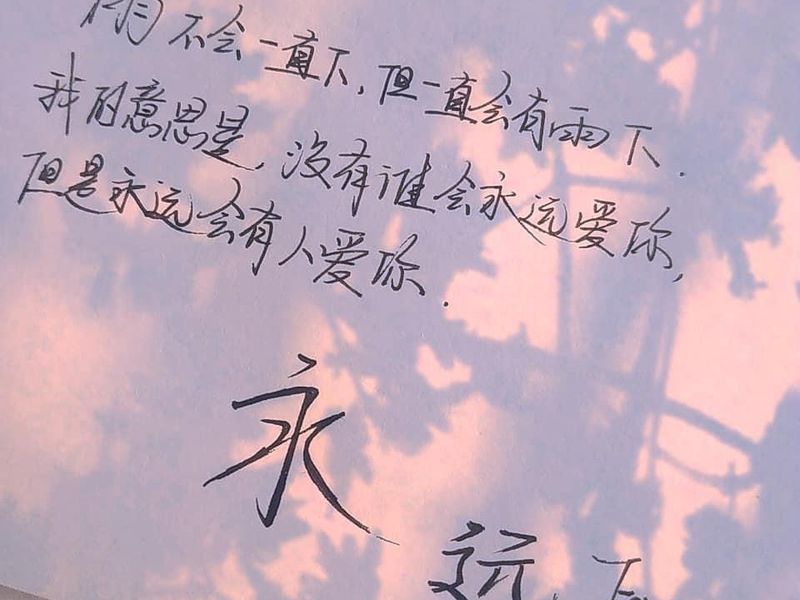 雨不会一直下，但一直会有雨下.
我的意思是，没有谁会永远爱你，
但是永远会有人爱你.
永
远.